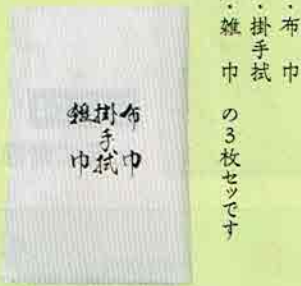 ・布巾
・掛手拭
・雑巾 の3枚セッです
布巾
掛手拭
雑巾